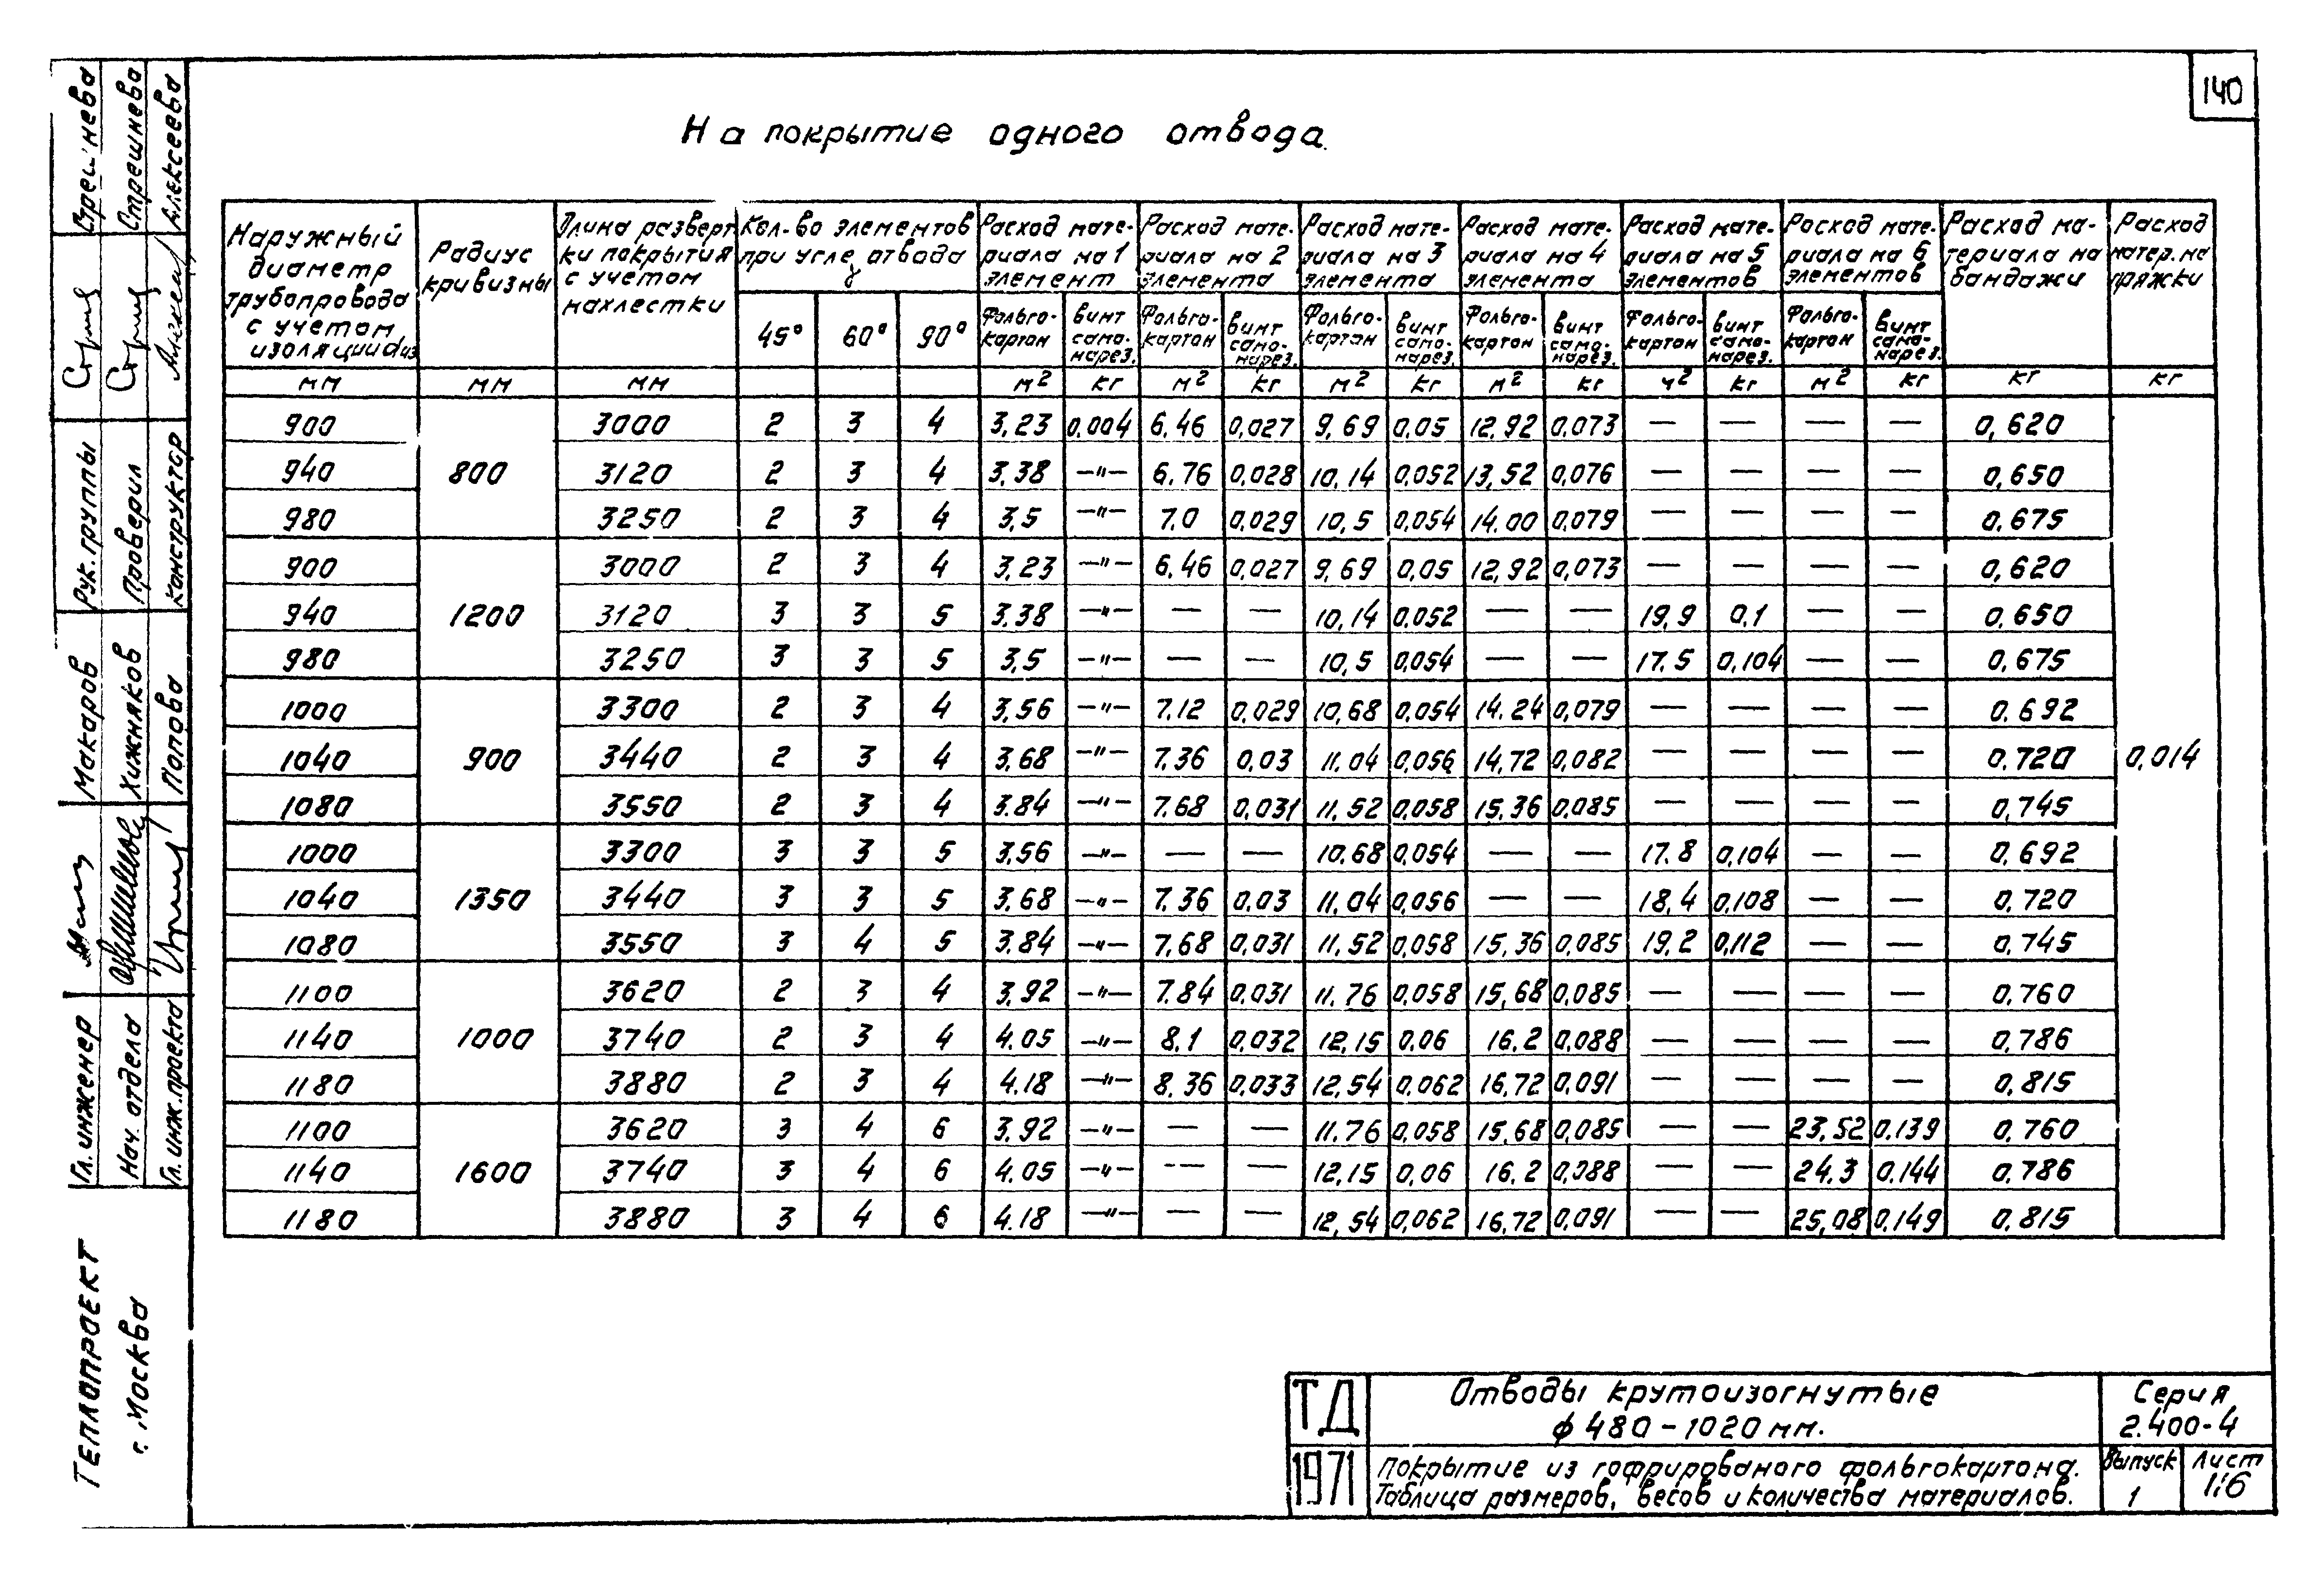 140
На покрытие одного отвода.
Наружный диаметр трубопровода с учетом изоляции dиз | Радиус кривизны | Длина разверт ки покрытия с учетом нахлестки | Кол-во элементов при угле отвода γ | Расход мате- риала на 1 элемент | Расход мате- риала на 2 элемента | Расход мате- риала на 3 элемента | Расход мате- риала на 4 элемента | Расход мате- риала на 5 элементов | Расход мате- риала на 6 элементов | Расход ма- териала на бандажи | Расход матер. на пряжки
45° | 60° | 90° | Фольго- картон | винт само- нарез. | Фольго- картон | винт само- нарез. | Фольго- картон | винт само- нарез. | Фольго- картон | винт само- нарез. | Фольго- картон | винт само- нарез. | Фольго- картон | винт само- нарез.
мм | мм | мм | м² | кг | м² | кг | м² | кг | м² | кг | м² | кг | м² | кг | кг | кг
900 | 3000 | 2 | 3 | 4 | 3,23 | 0,004 | 6.46 | 0,027 | 9,69 | 0,05 | 12,92 | 0,073 | — | — | — | — | 0,620
940 | 800 | 3120 | 2 | 3 | 4 | 3,38 | —"— | 6.76 | 0,028 | 10,14 | 0,052 | 13,52 | 0,076 | — | — | — | — | 0,650
980 | 3250 | 2 | 3 | 4 | 3,5 | —"— | 7.0 | 0,029 | 10,5 | 0,054 | 14.00 | 0,079 | — | — | — | — | 0,675
900 | 3000 | 2 | 3 | 4 | 3,23 | —"— | 6.46 | 0,027 | 9,69 | 0,05 | 12,92 | 0,073 | — | — | — | — | 0,620
940 | 1200 | 3120 | 3 | 3 | 5 | 3,38 | —"— | — | — | 10,14 | 0,052 | — | — | 19,9 | 0,1 | — | — | 0,650
980 | 3250 | 3 | 3 | 5 | 3,5 | —"— | — | — | 10,5 | 0,054 | — | — | 17.5 | 0,104 | — | — | 0,675
1000 | 3300 | 2 | 3 | 4 | 3,56 | —"— | 7.12 | 0,029 | 10,68 | 0,054 | 14.24 | 0,079 | — | — | — | — | 0.692
1040 | 900 | 3440 | 2 | 3 | 4 | 3,68 | —"— | 7,36 | 0,03 | 11.04 | 0,056 | 14,72 | 0,082 | — | — | — | — | 0.720 | 0,014
1080 | 3550 | 2 | 3 | 4 | 3.84 | —"— | 7.68 | 0,031 | 11,52 | 0,058 | 15,36 | 0,085 | — | — | — | — | 0,745
1000 | 3300 | 3 | 3 | 5 | 3,56 | —"— | — | — | 10.68 | 0,054 | — | — | 17.8 | 0,104 | — | — | 0,692
1040 | 1350 | 3440 | 3 | 3 | 5 | 3,68 | —"— | 7,36 | 0,03 | 11,04 | 0,056 | — | — | 18,4 | 0,108 | — | — | 0,720
1080 | 3550 | 3 | 4 | 5 | 3,84 | —"— | 7,68 | 0,031 | 11,52 | 0,058 | 15,36 | 0,085 | 19,2 | 0,112 | — | — | 0,745
1100 | 3620 | 2 | 3 | 4 | 3,92 | —"— | 7.84 | 0,031 | 11.76 | 0,058 | 15,68 | 0,085 | — | — | — | — | 0,760
1140 | 1000 | 3740 | 2 | 3 | 4 | 4.05 | —"— | 8.1 | 0,032 | 12,15 | 0,06 | 16.2 | 0,088 | — | — | — | — | 0,786
1180 | 3880 | 2 | 3 | 4 | 4.18 | —"— | 8,36 | 0,033 | 12,54 | 0,062 | 16,72 | 0,091 | — | — | — | — | 0,815
1100 | 3620 | 3 | 4 | 6 | 3,92 | —"— | — | — | 11.76 | 0,058 | 15,68 | 0,085 | — | — | 23,52 | 0,139 | 0,760
1140 | 1600 | 3740 | 3 | 4 | 6 | 4.05 | —"— | — | — | 12,15 | 0,06 | 16.2 | 0,088 | — | — | 24,3 | 0,144 | 0,786
1180 | 3880 | 3 | 4 | 6 | 4.18 | —"— | — | — | 12,54 | 0,062 | 16,72 | 0,091 | — | — | 25,08 | 0,149 | 0,815
ТД
1971
Отводы крутоизогнутые
ф 480 – 1020 мм.
Покрытие из гофрированого фольгокартона.
Таблица размеров, весов и количества материалов.
Серия
2.400-4
Выпуск
1
Лист
Теплопроект
г. Москва
Гл. инженер Макаров
Нач. отдела Хижняков
Гл. инж. проекта Попова
Рук. группы Стрешнева
Проверил Стрешнева
Конструктор Алексеева